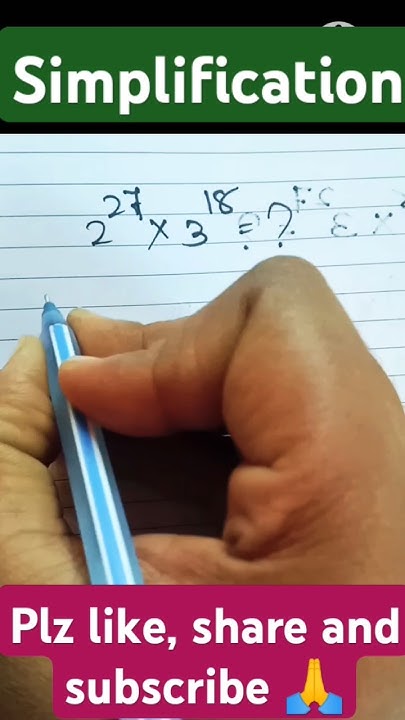 Simplification
2²⁷ × 3¹⁸ = ?
Plz like, share and
subscribe 🙏